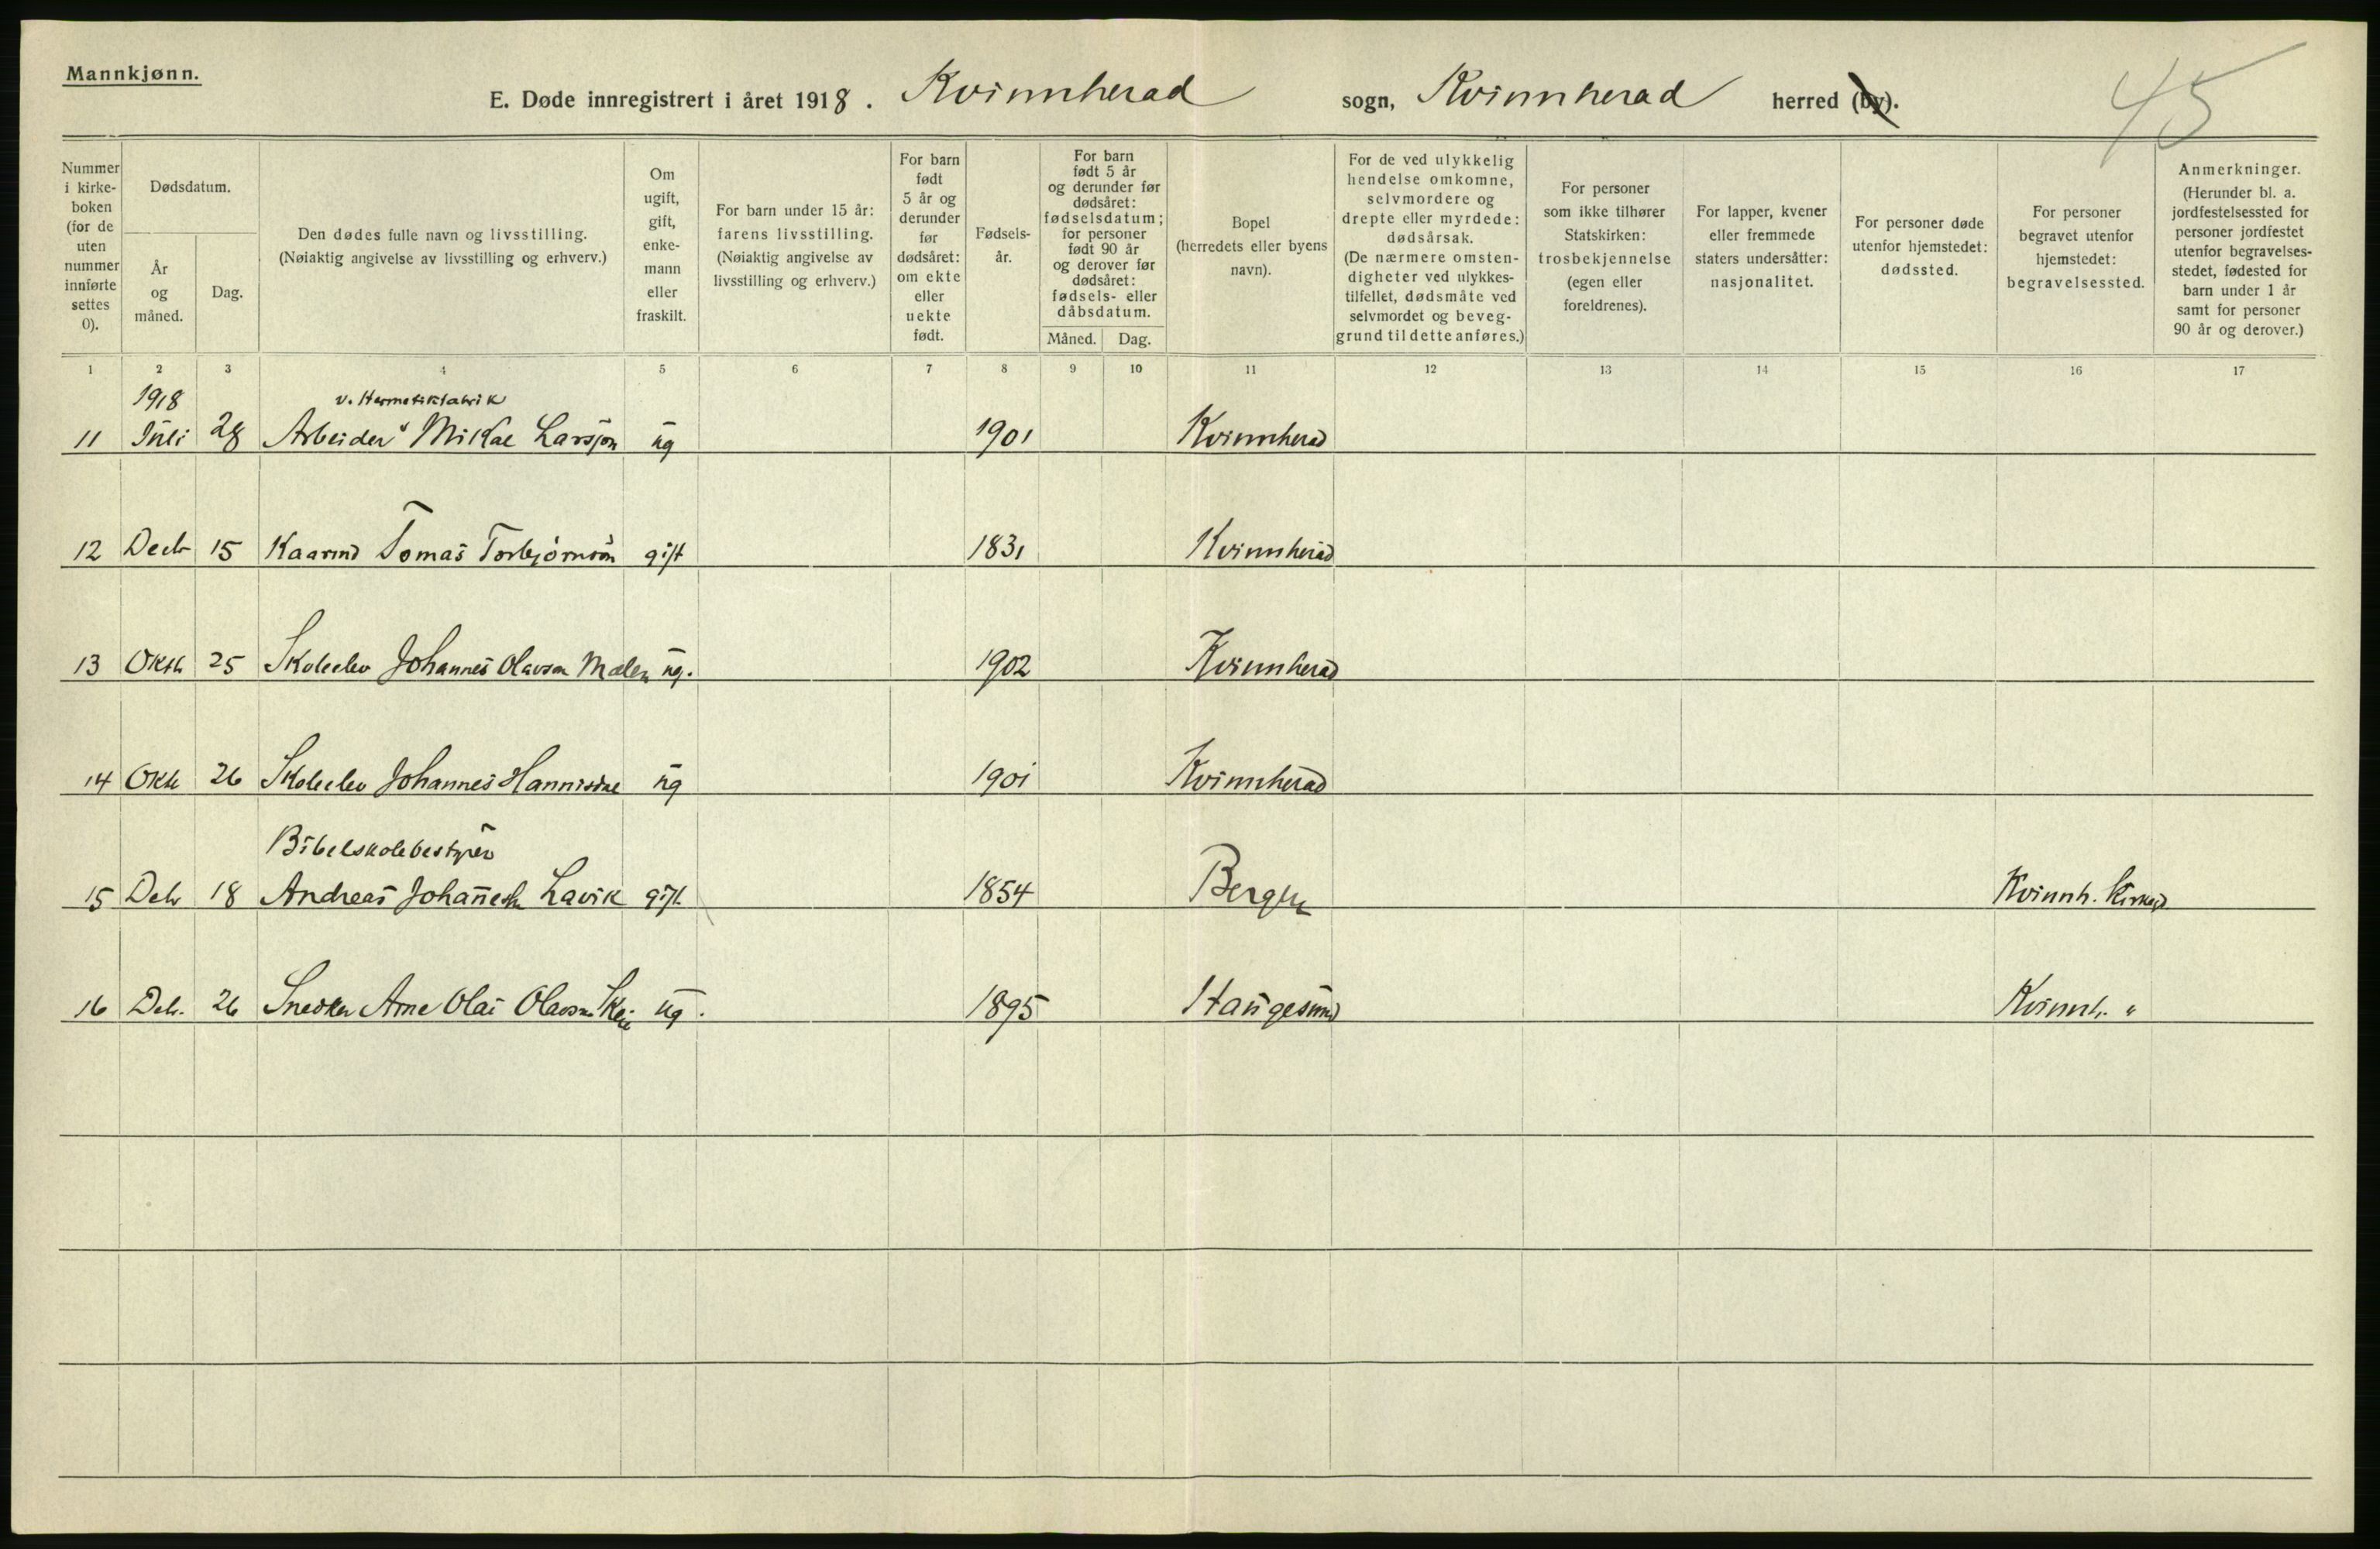 Mannkjønn.
E. Døde innregistrert i året 1918. Kvinnherad sogn, Kvinnherad herred (by).
45
Nummer i kirkeboken (for de uten nummer innførte settes 0).
Dødsdatum.
År og måned.
Dag.
Den dødes fulle navn og livsstilling.
(Nøiaktig angivelse av livsstilling og erhverv.)
Om ugift, gift, enkemann eller fraskilt.
For barn under 15 år: farens livsstilling.
(Nøiaktig angivelse av livsstilling og erhverv.)
For barn født 5 år og derunder før dødsåret: om ekte eller uekte født.
Fødselsår.
For barn født 5 år og derunder før dødsåret: fødselsdatum; for personer født 90 år og derover før dødsåret: fødsels- eller dåbsdatum.
Måned. Dag.
Bopel
(herredets eller byens navn).
For de ved ulykkelig hendelse omkomne, selvmordere og drepte eller myrdede: dødsårsak.
(De nærmere omstendigheter ved ulykkestilfellet, dødsmåte ved selvmordet og beveggrund til dette anføres.)
For personer som ikke tilhører Statskirken: trosbekjennelse
(egen eller foreldrenes).
For lapper, kvener eller fremmede staters undersåtter: nasjonalitet.
For personer døde utenfor hjemstedet: dødssted.
For personer begravet utenfor hjemstedet: begravelsessted.
Anmerkninger.
(Herunder bl. a. jordfestelsessted for personer jordfestet utenfor begravelsesstedet, fødested for barn under 1 år samt for personer 90 år og derover.)
1 2 3 4 5 6 7 8 9 10 11 12 13 14 15 16 17
1918 v. Hermetikfabrik
11 Juli 28 Arbeider Mikal Larsson ug 1901 Kvinnherad
12 Decb 15 Kaarmd Tomas Torbjörnson gift 1831 Kvinnherad
13 Oktb 25 Skoleelev Johannes Olavson Malen ug. 1902 Kvinnherad
14 Oktb 26 Skoleelev Johannes Hannisdal ug 1901 Kvinnherad
Bibelskolebestyrer
15 Deb 18 Andreas Johannesen Lavik gift 1854 Bergen Kvinnh. Kirkegd
16 Deb. 26 Snedker Arne Olai Olavson Skeie ug. 1895 Haugesund Kvinnh. "